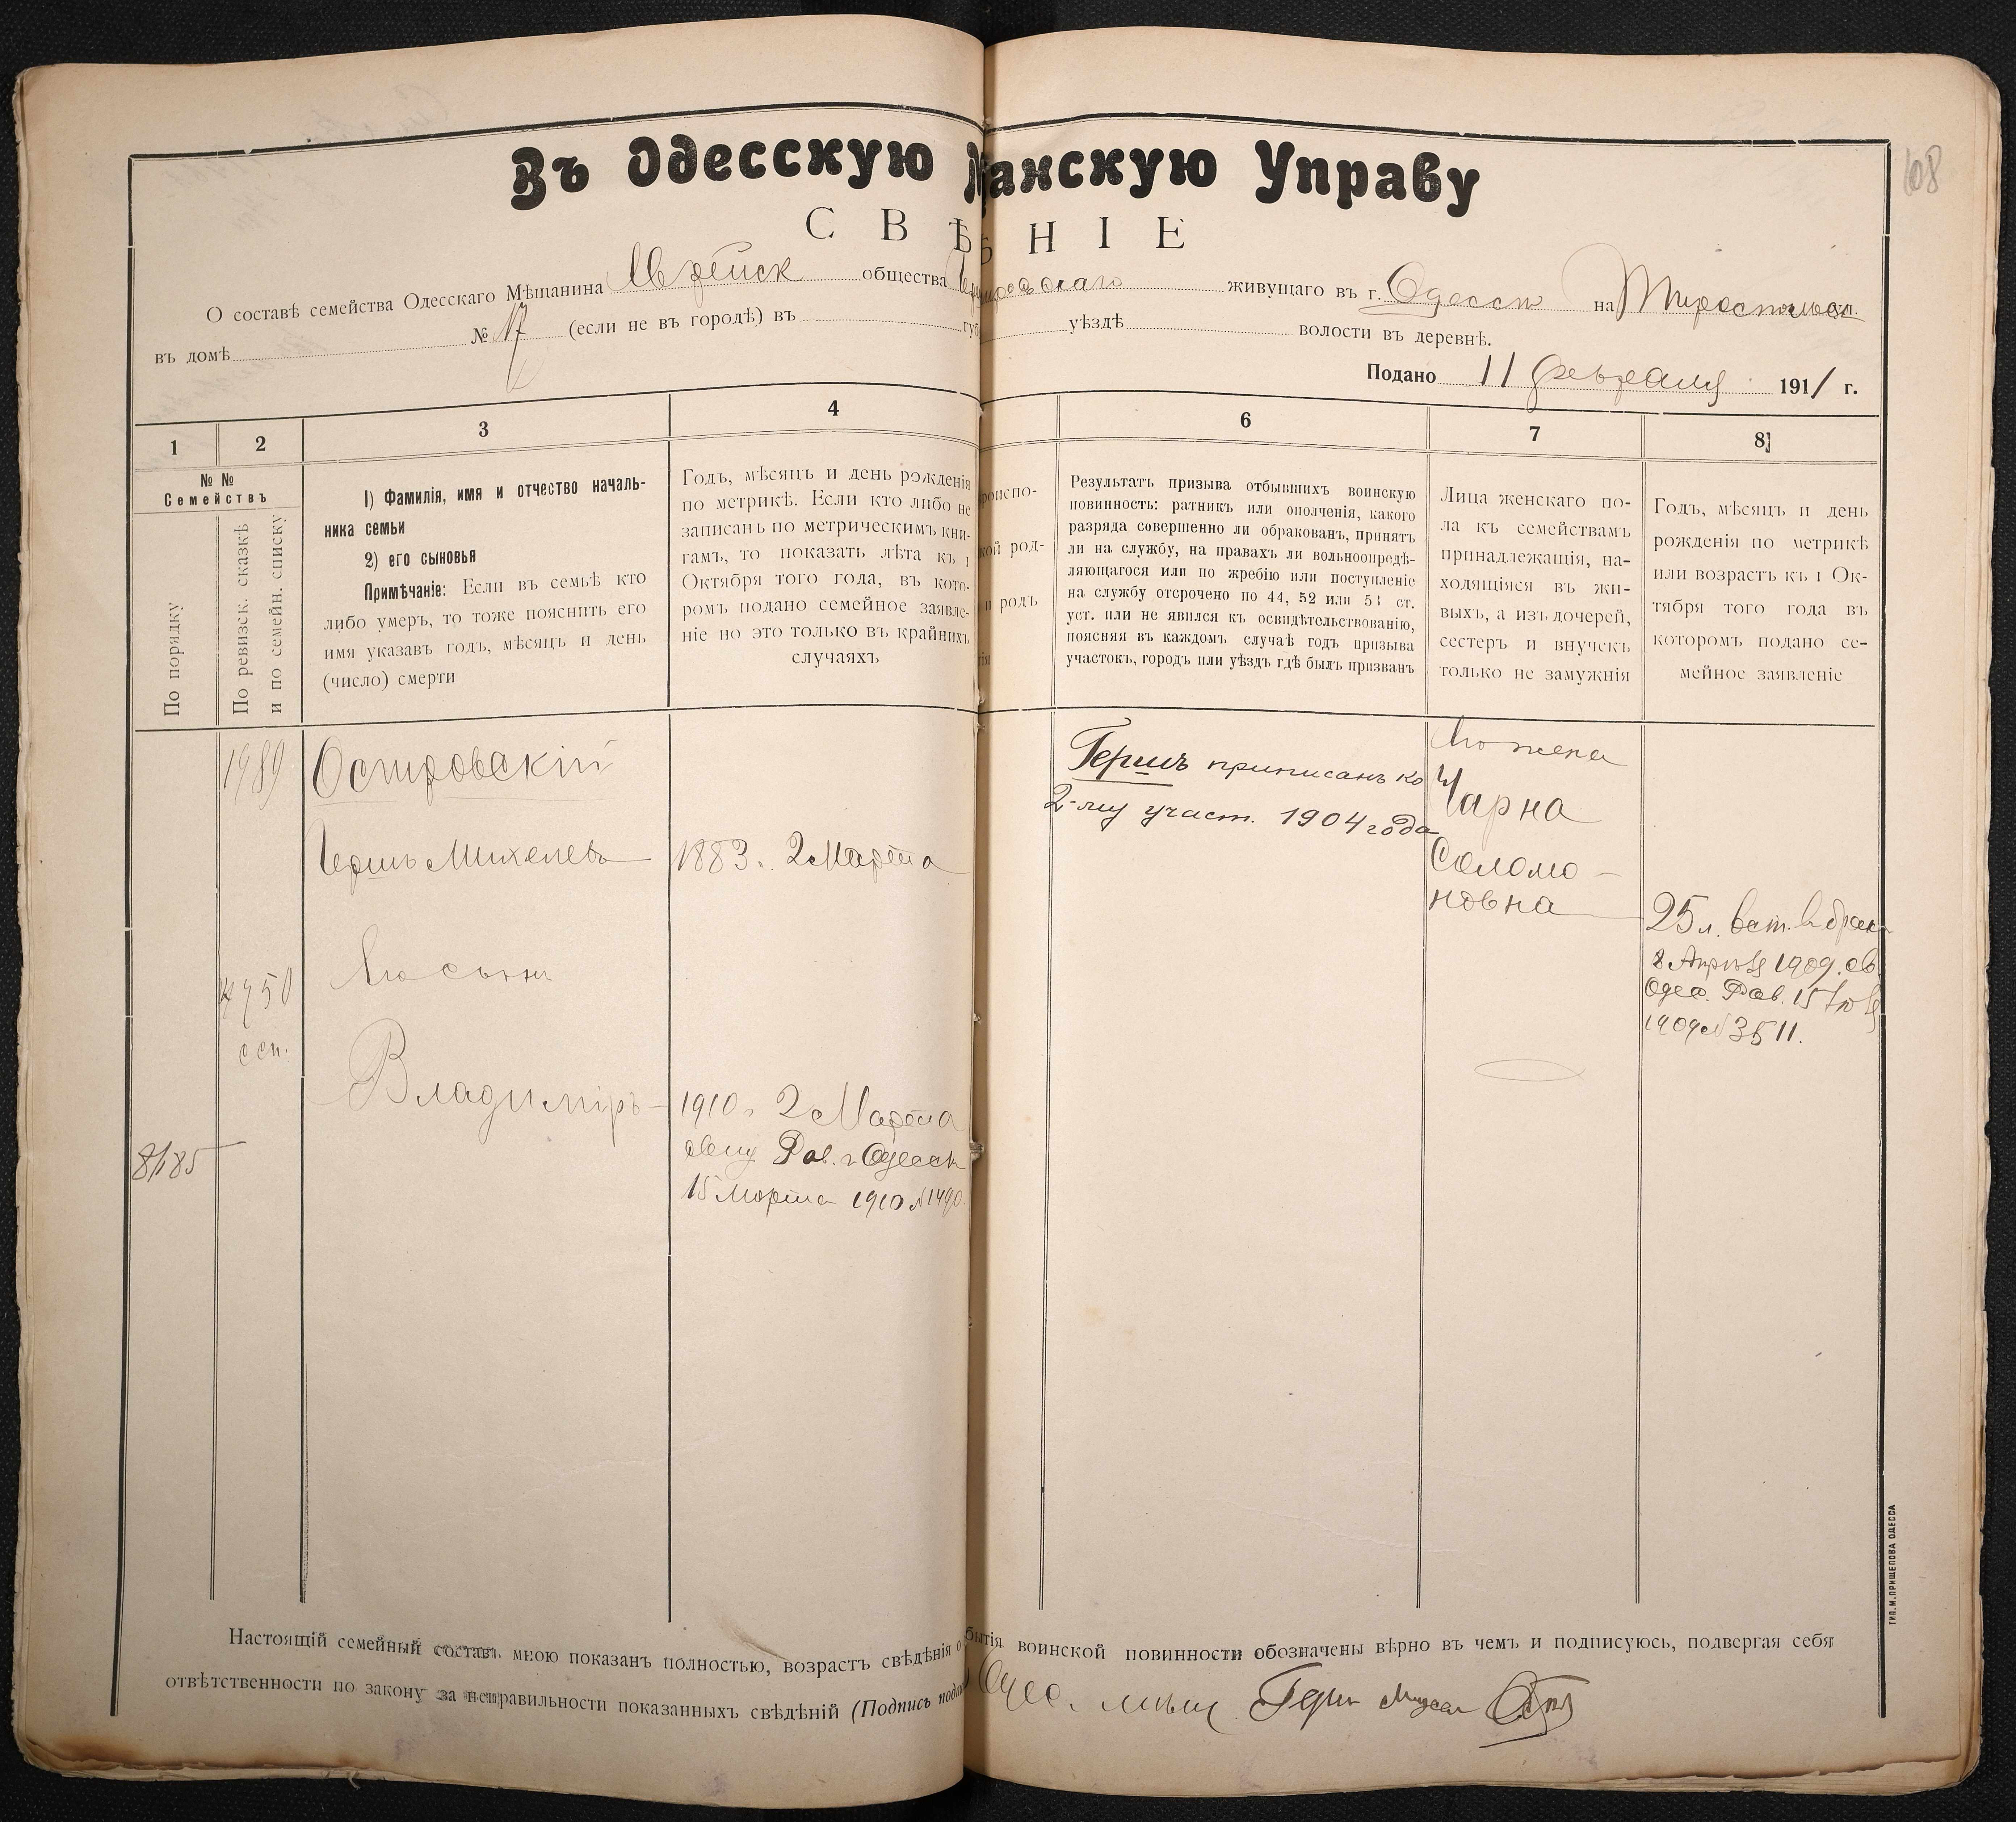 108
Въ Одесскую Мѣщанскую Управу
СВѢДѢНІЕ
О составѣ семейства Одесскаго Мѣщанина Еврейск общества живущаго въ г. Одессѣ на Тираспольск ул.
въ домѣ № 17 (если не въ городѣ) въ губ уѣздѣ волости въ деревнѣ.
Подано 11 февраля 1911 г.
1 2 3 4 6 7 8
№ №
Семействъ
По порядку
По ревизск. сказкѣ
и по семейн. списку
1) Фамилія, имя и отчество началь-
ника семьи
2) его сыновья
Примѣчаніе: Если въ семьѣ кто
либо умеръ, то тоже пояснить его
имя указавъ годъ, мѣсяцъ и день
(число) смерти
Годъ, мѣсяцъ и день рожденія
по метрикѣ. Если кто либо не
записанъ по метрическимъ кни-
гамъ, то показать лѣта къ 1
Октября того года, въ кото-
ромъ подано семейное заявле-
ніе но это только въ крайнихъ
случаяхъ
роиспо-
кой род-
и родъ
гія
Результатъ призыва отбывшихъ воинскую
повинность: ратникъ или ополченія, какого
разряда совершенно ли обракованъ, принятъ
ли на службу, на правахъ ли вольноопредѣ-
ляющагося или по жребію или поступленіе
на службу отсрочено по 44, 52 или 53 ст.
уст. или не явился къ освидѣтельствованію,
поясняя въ каждомъ случаѣ годъ призыва
участокъ, городъ или уѣздъ гдѣ былъ призванъ
Лица женскаго по-
ла къ семействамъ
принадлежащія, на-
ходящіяся въ жи-
выхъ, а изъ дочерей,
сестеръ и внучекъ
только не замужнія
Годъ, мѣсяцъ и день
рожденія по метрикѣ
или возрастъ къ 1 Ок-
тября того года въ
которомъ подано се-
мейное заявленіе
1989 Островскій
Гершъ Михелевъ 1883. 2 Марта
Гершъ приписанъ ко
2-му участ. 1904 года
Его жена
Чарна
Соломо-
новна
25 л. вст. въ бракъ
8 Апрѣля 1909. св.
Одес. Рав. 15 Іюля
1909 № 3511.
Его сынъ
4750
ссп.
Владиміръ 1910 г. 2 Марта
свид Рав. г Одесск
15 Марта 1910 № 1490.
8185
Настоящій семейный составъ мною показанъ полностью, возрастъ свѣдѣнія о бытія воинской повинности обозначены вѣрно въ чемъ и подписуюсь, подвергая себя
отвѣтственности по закону за неправильности показанныхъ свѣдѣній (Подпись Одес. мѣщ. Герш
ТИП. М. ПРИЩЕПОВА ОДЕССА